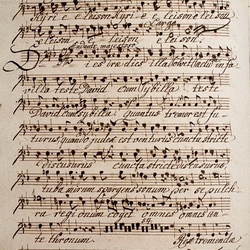 Kyri e e leison Kyri e e leison e lei son
e leison e leison e lei son.
Andante maestoso
Dies irae dies illa solvet saeclum in fa
villa teste David cum Sybilla teste
David cum Sybilla quantus tremor est fu
turus quando judex est venturus cuncta stricte
discussurus cuncta stricte discussurus
tuba mirum spargens sonum per sepulch
ra regionum coget omnes omnes an
te thronum. Rex tremendae